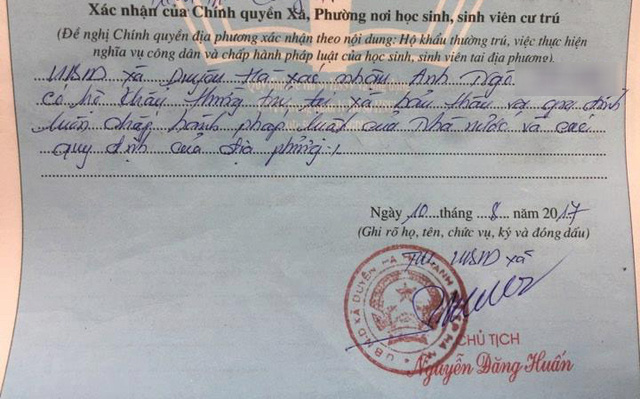 Xác nhận của Chính quyền Xã, Phường nơi học sinh, sinh viên cư trú
(Đề nghị Chính quyền địa phương xác nhận theo nội dung: Hộ khẩu thường trú, việc thực hiện
nghĩa vụ công dân và chấp hành pháp luật của học sinh, sinh viên tại địa phương).
UBND xã Duyên Hà xác nhận Anh Ngô
có hộ khẩu thường trú tại xã bản thân và gia đình
luôn chấp hành pháp luật của nhà nước và các
quy định của địa phương.
Ngày 10 tháng 8 năm 2017
(Ghi rõ họ, tên, chức vụ, ký và đóng dấu)
TM UBND xã
U.B.N.D XÃ DUYÊN HÀ
CHỦ TỊCH
Nguyễn Đăng Huấn